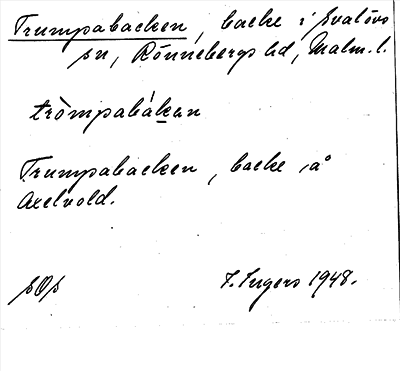 Trumpabacken, backe i Svalövs
sn, Rönnebergs hd, Malm. l.
tròmpabákan
Trumpabacken, backe å
Axelvold.
sOs
I. Ingers 1948.